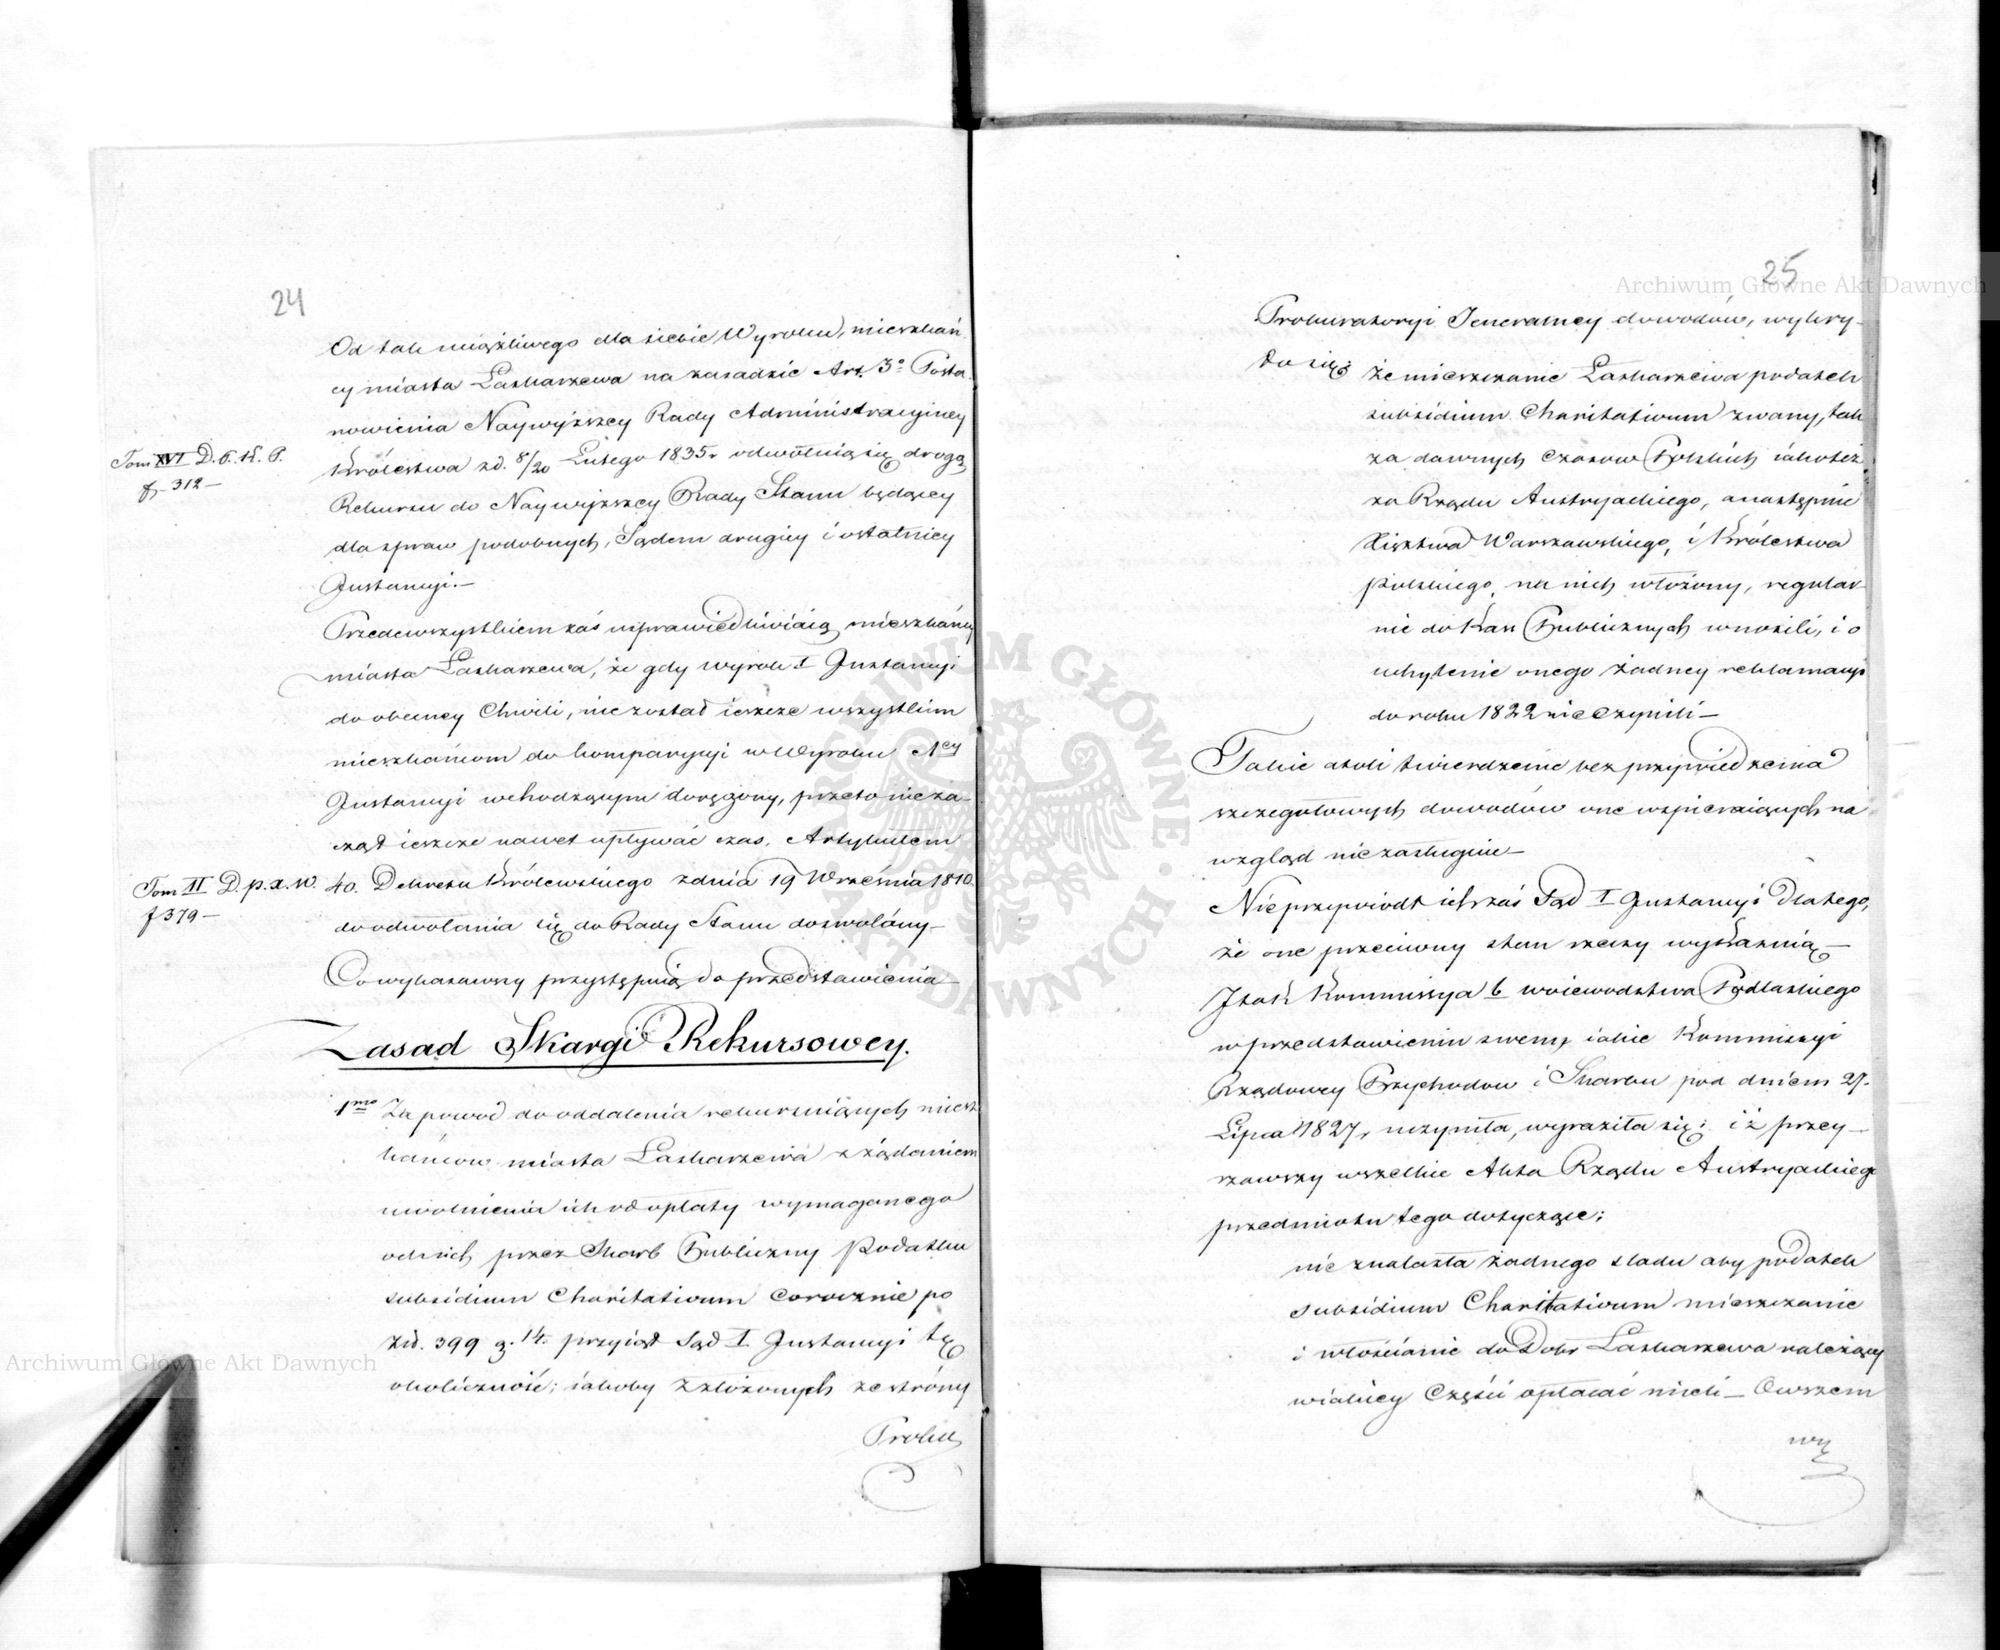 24
Od tak uciążliwego dla siebie Wyroku, mieszkań
cy miasta Łaskarzewa na zasadzie Art. 3º Posta
nowienia Naywyższey Rady Administracyiney
Tom XVI D. P. K. P.
f. 312 —
Królestwa z d. 8/20 Lutego 1835 r odwołuią się drogą
Rekursu do Naywyższey Rady Stanu będącey
dla spraw podobnych, Sądem drugiey i ostatniey
Instancyi.—
Przedewszystkiem zaś usprawiedliwiaią mieszkańcy
miasta Łaskarzewa, że gdy wyrok I Instancyi
do obecney Chwili, nie został ieszcze wszystkim
mieszkańcom do komparycyi w Wyroku 1ey
Instancyi wchodzącym doręczony, przeto nie za-
czął ieszcze nawet upływać czas, Artykułem
Tom II D. p. x. w.
f 379 —
40. Dekretu Królewskiego z dnia 19 Września 1810.
do odwołania się do Rady Stanu dozwolony —
Co wykazawszy przystępuią do przedstawienia
Zasad Skargi Rekursowey.
1mo Za powód do oddalenia rekursuiących miesz
kańców miasta Łaskarzewa z żądaniem
uwolnienia ich od opłaty wymaganego
od nich przez Skarb Publiczny Podatku
subsidium Charitativum corocznie po
złp. 399 g. 14. przyiął Sąd I Instancyi tę
okoliczność; iakoby z złożonych ze strony
Proku
25
Prokuratoryi Jeneralney dowodów, wykry-
to się;
że mieszczanie Łaskarzewa podatek
subsidium Charitativum zwany, tak
za dawnych czasów Polskich iako też
za Rządu Austryackiego, a następnie
Xięztwa Warszawskiego, i Królestwa
Polskiego, na nich włożony, regular
nie do Kass Publicznych wnosili, i o
uchylenie onego żadney reklamacyi
do roku 1822 nie czynili —
Takie atoli twierdzenie bez przywiedzenia
szczegułowych dowodów one wspieraiących na
wzgląd nie zasługuie —
Nie przywiódł ich zaś Sąd I Instancyi dlatego,
że one przeciwny stan rzeczy wyświecaią —
I tak Kommissya b woiewodztwa Podlaskiego
w przedstawieniu swem, iakie Kommissyi
Rządowey Przychodów i Skarbu pod dniem 27.
Lipca 1827 r uczyniła, wyraziła się; iż przey-
rzawszy wszelkie Akta Rządu Austryackiego
przedmiotu tego dotyczące;
nie znalazła żadnego sladu aby podatek
subsidium Charitativum mieszczanie
i włościanie do Dobr Łaskarzewa należący
w iakiey Części opłacać mieli — Owszem
wy